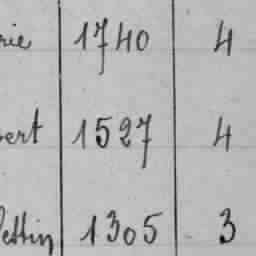 rie 1740 4
bert 1527 4
ettin 1305 3